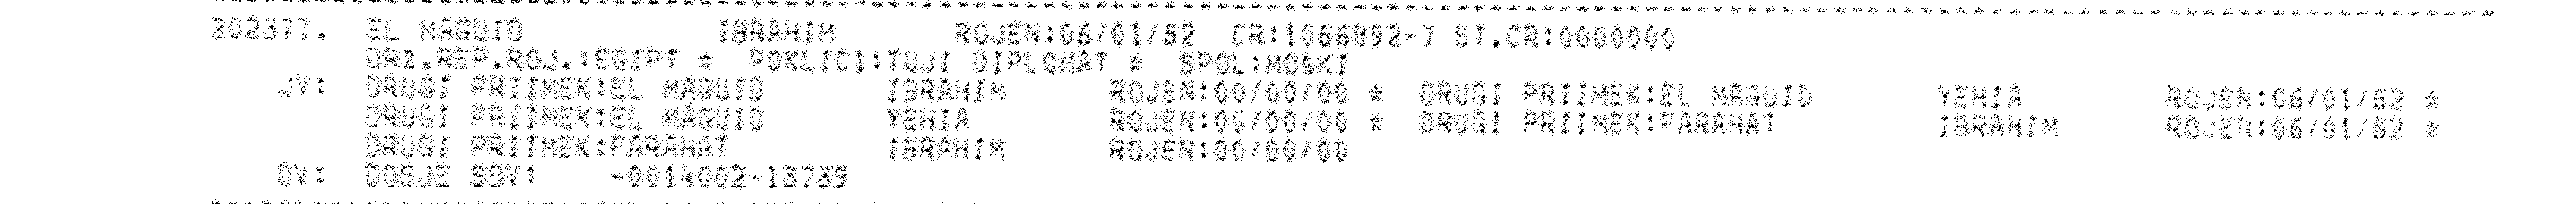 202377. EL MAGUID IBRAHIM ROJEN:06/01/52 CR:1056892-7 ST.CR:0000000
DRZ.REP.ROJ.:EGIPT * POKLIC1:TUJI DIPLOMAT * SPOL:MOSKI
JV: DRUGI PRIIMEK:EL MAGUID IBRAHIM ROJEN:00/00/00 * DRUGI PRIIMEK:EL MAGUID YEHIA ROJEN:06/01/52 *
DRUGI PRIIMEK:EL MAGUID YEHIA ROJEN:00/00/00 * DRUGI PRIIMEK:FARAHAT IBRAHIM ROJEN:06/01/52 *
DRUGI PRIIMEK:FARAHAT IBRAHIM ROJEN:00/00/00
DV: DOSJE SDV: -0014002-13739